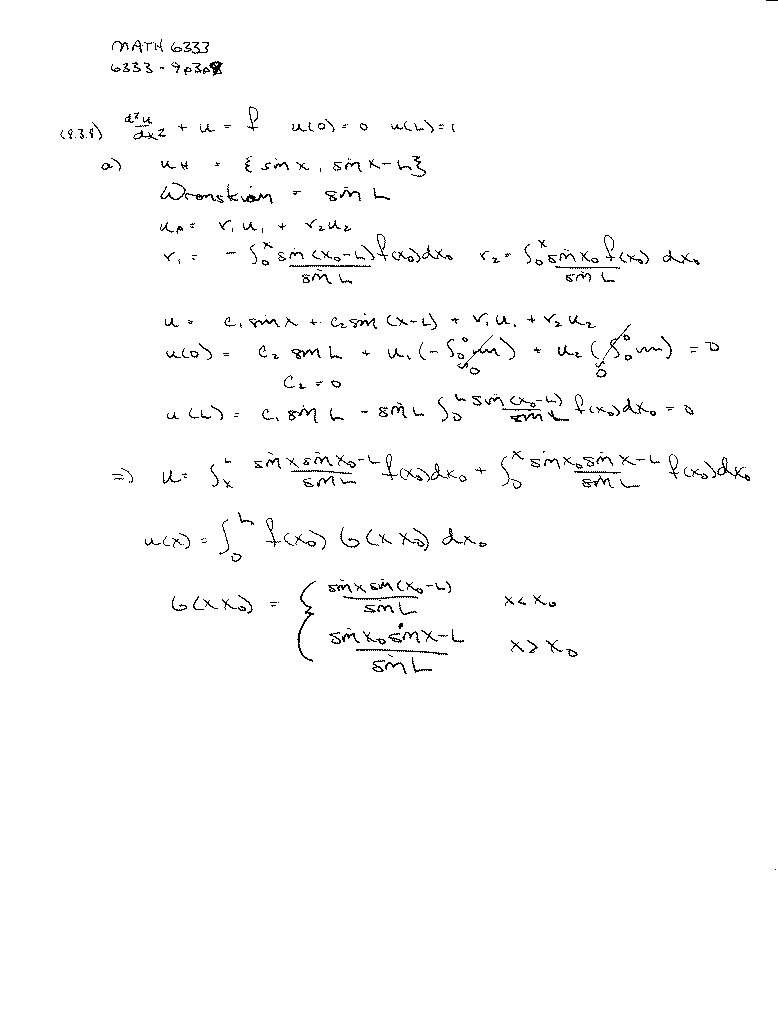 MATH 6333
6333 - 9p3p8
(9.3.9) d²u/dx² + u = f u(0) = 0 u(L) = 1
a) u_H = {sin x, sin x-L}
Wronskian = sin L
u_p = v₁u₁ + v₂u₂
v₁ = - ∫₀ˣ sin(x₀-L)/sin L f(x₀)dx₀ v₂ = ∫₀ˣ sin x₀/sin L f(x₀) dx₀
u = c₁ sin x + c₂ sin (x-L) + v₁u₁ + v₂u₂
u(0) = c₂ sin L + u₁(-∫₀⁰ ) + u₂(∫₀⁰ ) = 0
0 0
c₂ = 0
u(L) = c₁ sin L - sin L ∫₀ᴸ sin(x₀-L)/sin L f(x₀)dx₀ = 0
⇒ u = ∫ₓᴸ sin x sin x₀-L/sin L f(x₀)dx₀ + ∫₀ˣ sin x₀ sin x-L/sin L f(x₀)dx₀
u(x) = ∫₀ᴸ f(x₀) G(x x₀) dx₀
G(x x₀) = { sin x sin(x₀-L)/sin L x < x₀
sin x₀ sin x-L/sin L x > x₀